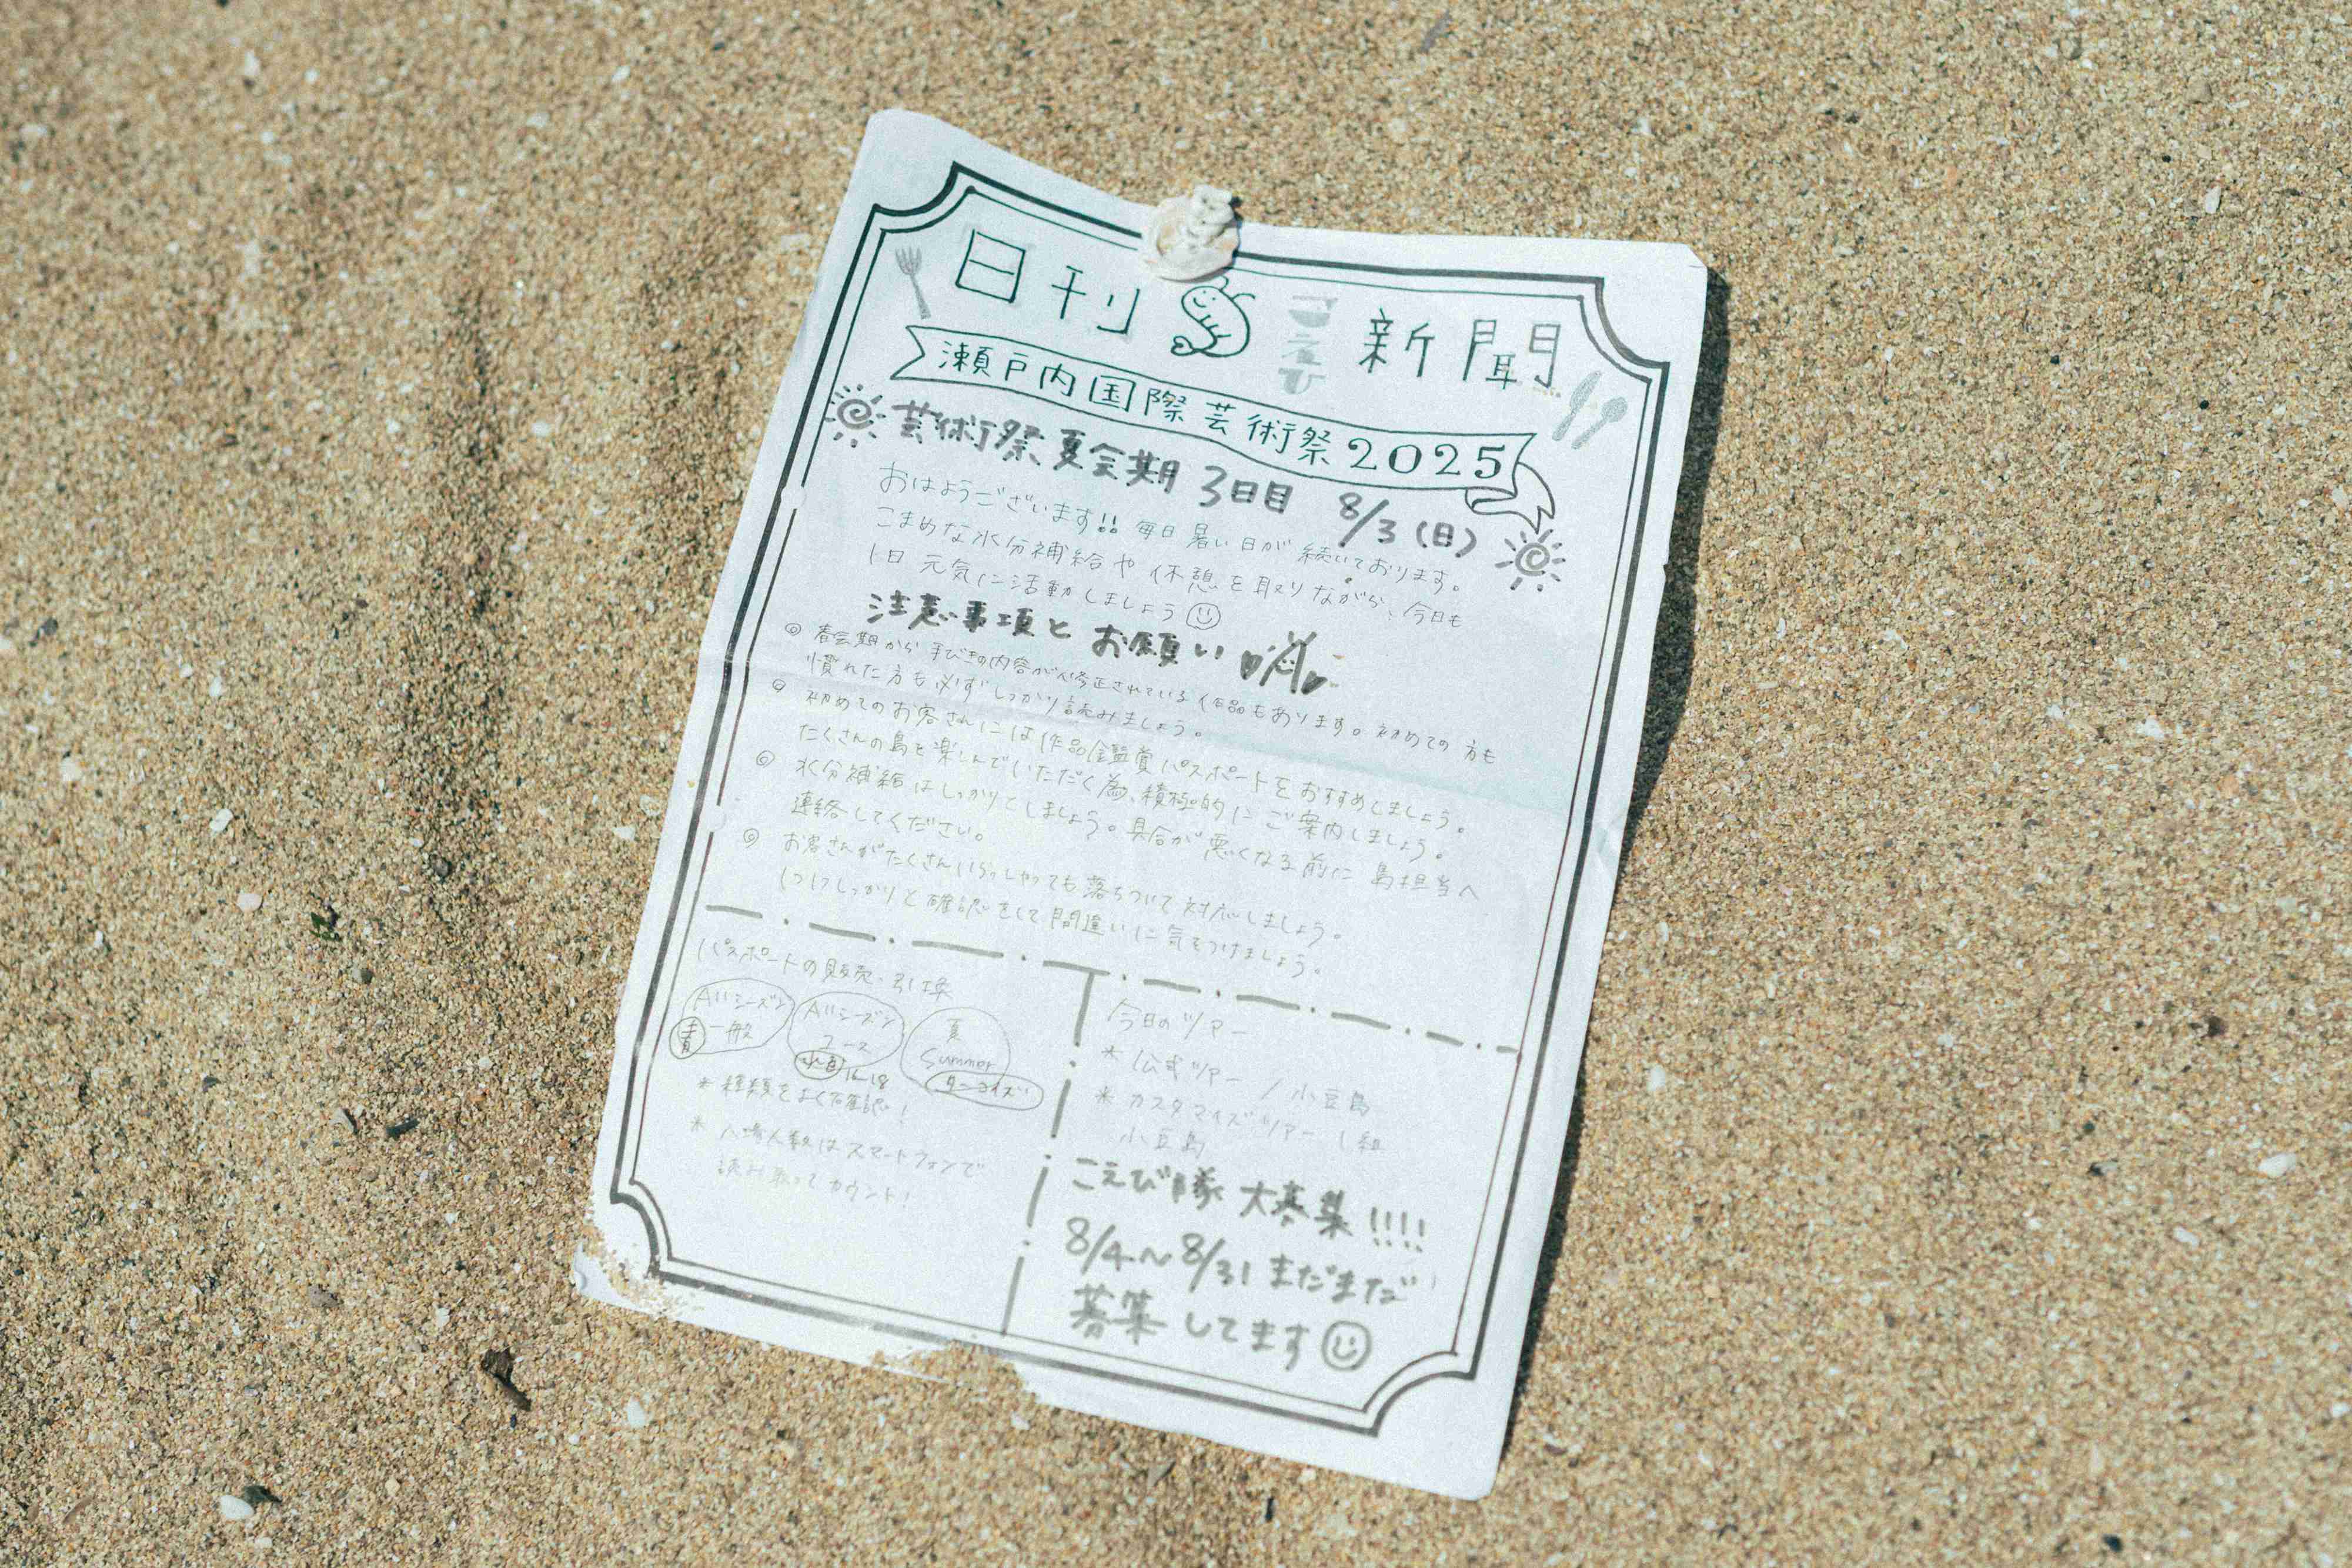 日刊 こえび 新聞
瀬戸内国際芸術祭2025
芸術祭夏会期 3日目 8/3(日)
おはようございます!! 毎日暑い日が続いております。
こまめな水分補給や休憩を取りながら、今日も
1日元気に活動しましょう
注意事項とお願い
◎ 春会期から手びきの内容が修正されている作品もあります。初めての方も
慣れた方も必ずしっかり読みましょう。
◎ 初めてのお客さんには作品鑑賞パスポートをおすすめしましょう。
たくさんの島を楽しんでいただく為、積極的にご案内しましょう。
◎ 水分補給はしっかりとしましょう。具合が悪くなる前に島担当へ
連絡してください。
◎ お客さんがたくさんいらっしゃっても落ちついて対応しましょう。
1つ1つしっかりと確認をして間違いに気をつけましょう。
パスポートの販売・引換
Allシーズン
一般
青
Allシーズン
ユース
16-18
夏
Summer
ターコイズ
* 種類をよく確認!
* 入場人数はスマートフォンで
読み取ってカウント!
今日のツアー
* 公式ツアー / 小豆島
* カスタマイズツアー 1組
小豆島
こえび隊 大募集!!!!
8/4〜8/31 まだまだ
募集してます